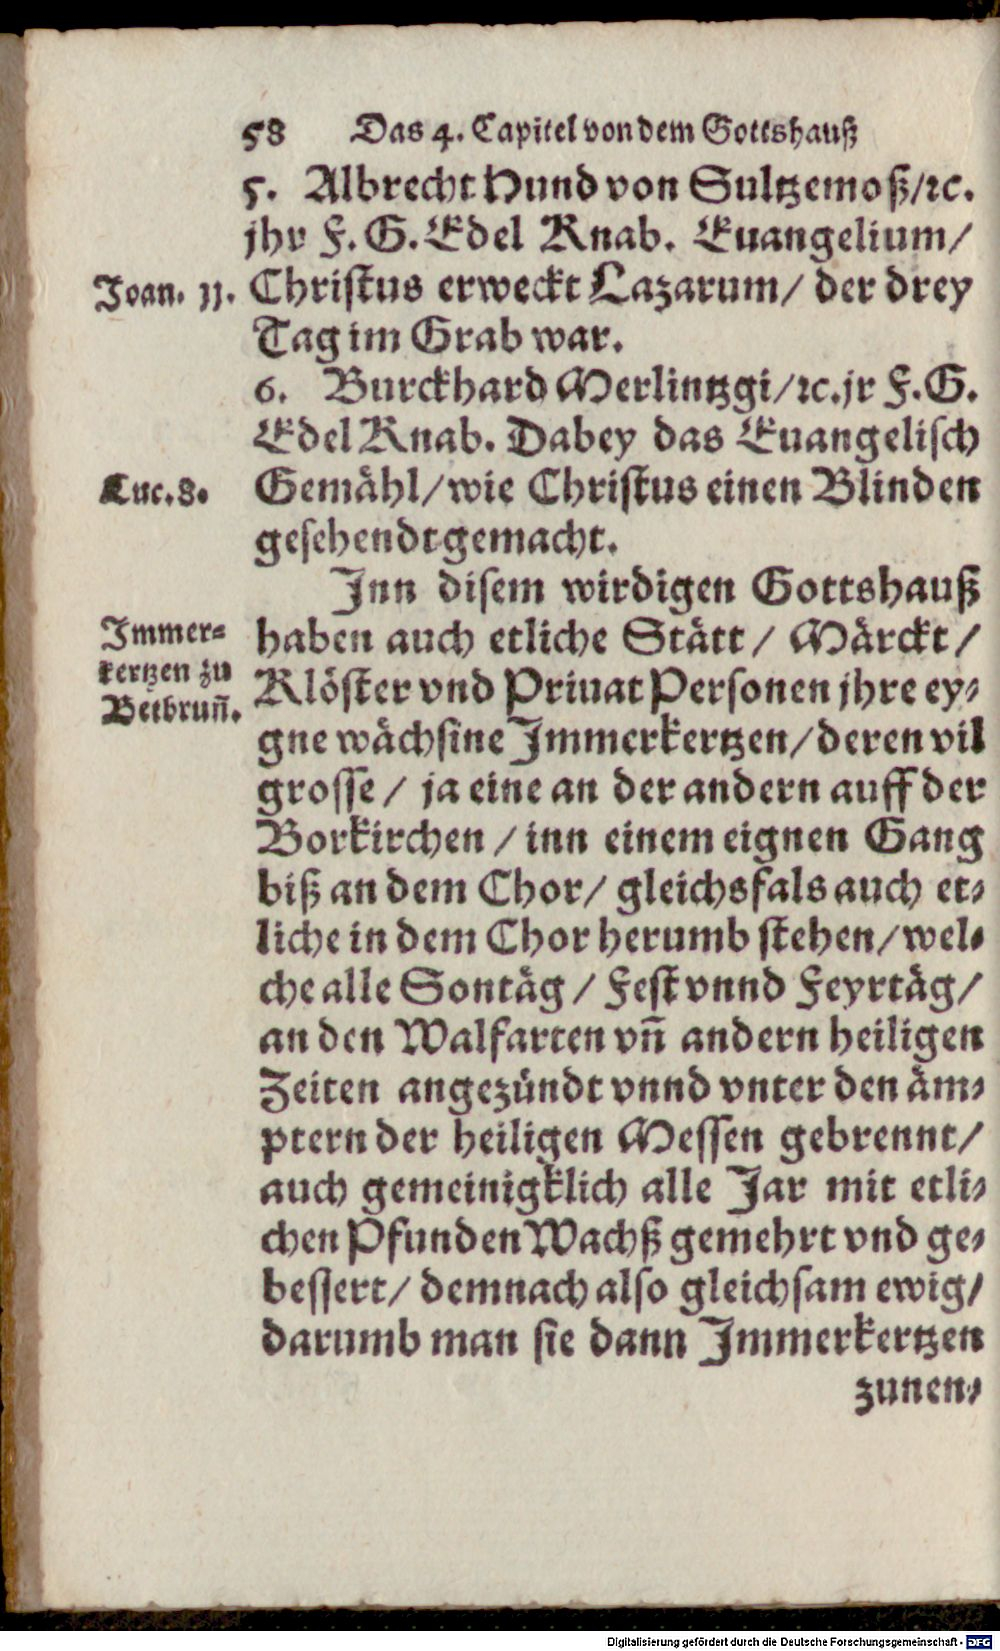 58 Das 4. Capitel von dem Gottshauß
5. Albrecht Hund von Sultzemoß/ ꝛc.
jhr F. G. Edel Knab. Euangelium/
Joan. 11.
Christus erweckt Lazarum/ der drey
Tag im Grab war.
6. Burckhard Merlintzgi/ ꝛc. jr F. G.
Edel Knab. Dabey das Euangelisch
Luc. 8.
Gemähl/ wie Christus einen Blinden
gesehendt gemacht.
Inn disem wirdigen Gottshauß
Immer-
kertzen zu
Betbrun̄.
haben auch etliche Stätt/ Märckt/
Klöster vnd Priuat Personen jhre ey-
gne wächsine Immerkertzen/ deren vil
grosse/ ja eine an der andern auff der
Borkirchen/ inn einem eignen Gang
biß an dem Chor/ gleichsfals auch et-
liche in dem Chor herumb stehen/ wel-
che alle Sontäg/ Fest vnnd Feyrtäg/
an den Walfarten vn̄ andern heiligen
Zeiten angezündt vnnd vnter den äm-
ptern der heiligen Messen gebrennt/
auch gemeinigklich alle Jar mit etli-
chen Pfunden Wachß gemehrt vnd ge-
bessert/ demnach also gleichsam ewig/
darumb man sie dann Immerkertzen
zunen-
Digitalisierung gefördert durch die Deutsche Forschungsgemeinschaft - DFG